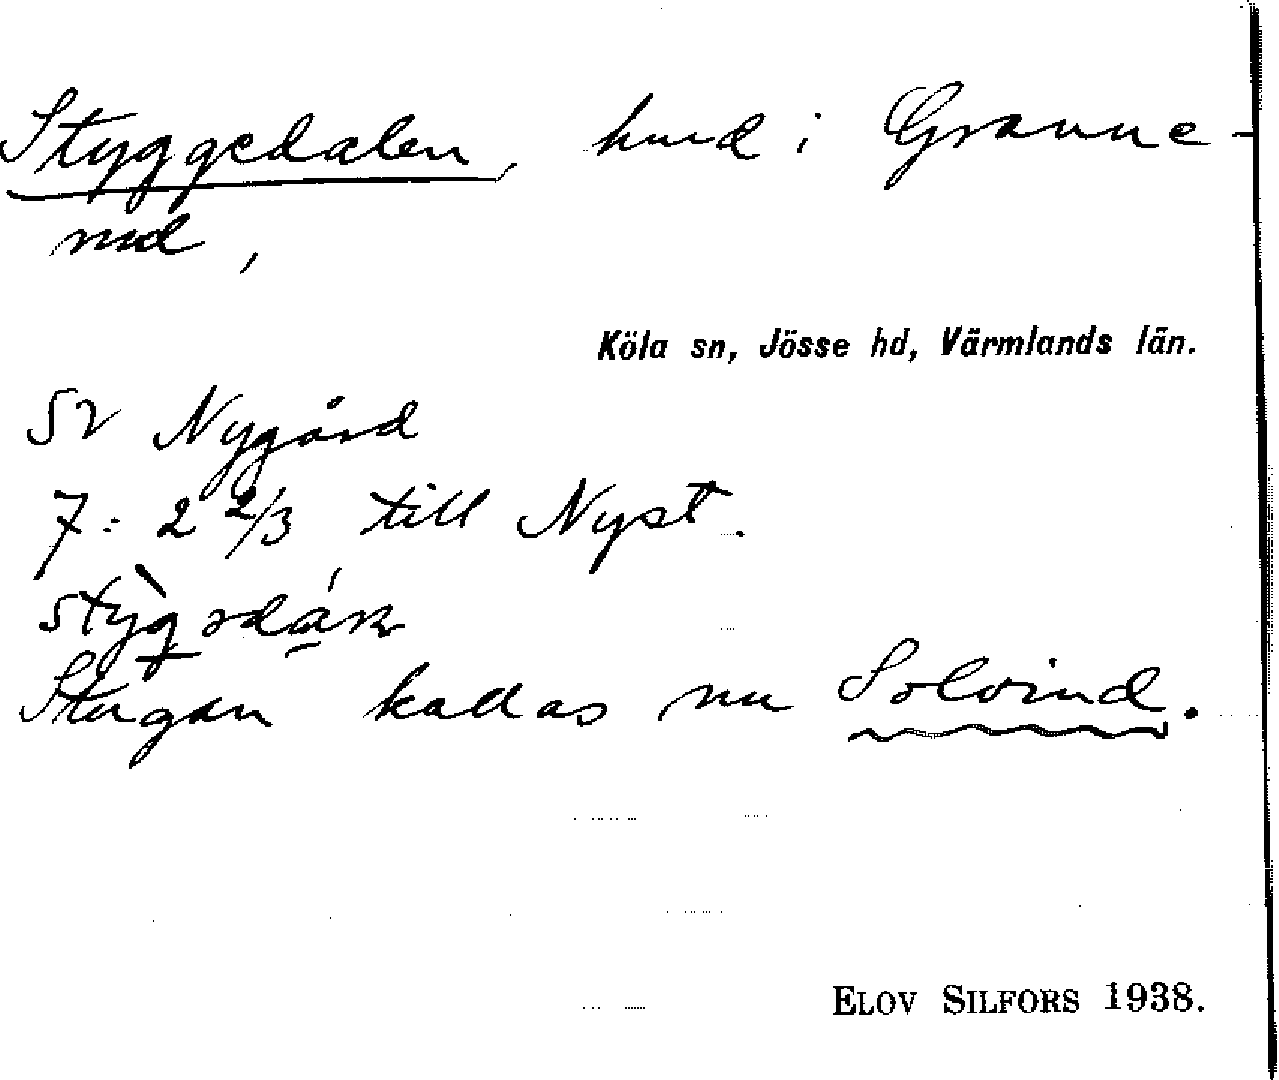 Styggedalen, hmd i Granne-
rud,
Köla sn, Jösse hd, Värmlands län.
SV Nygård
7: 2 2/3 till Nyst.
Stugan kallas nu Solvind.
ELOV SILFORS 1938.